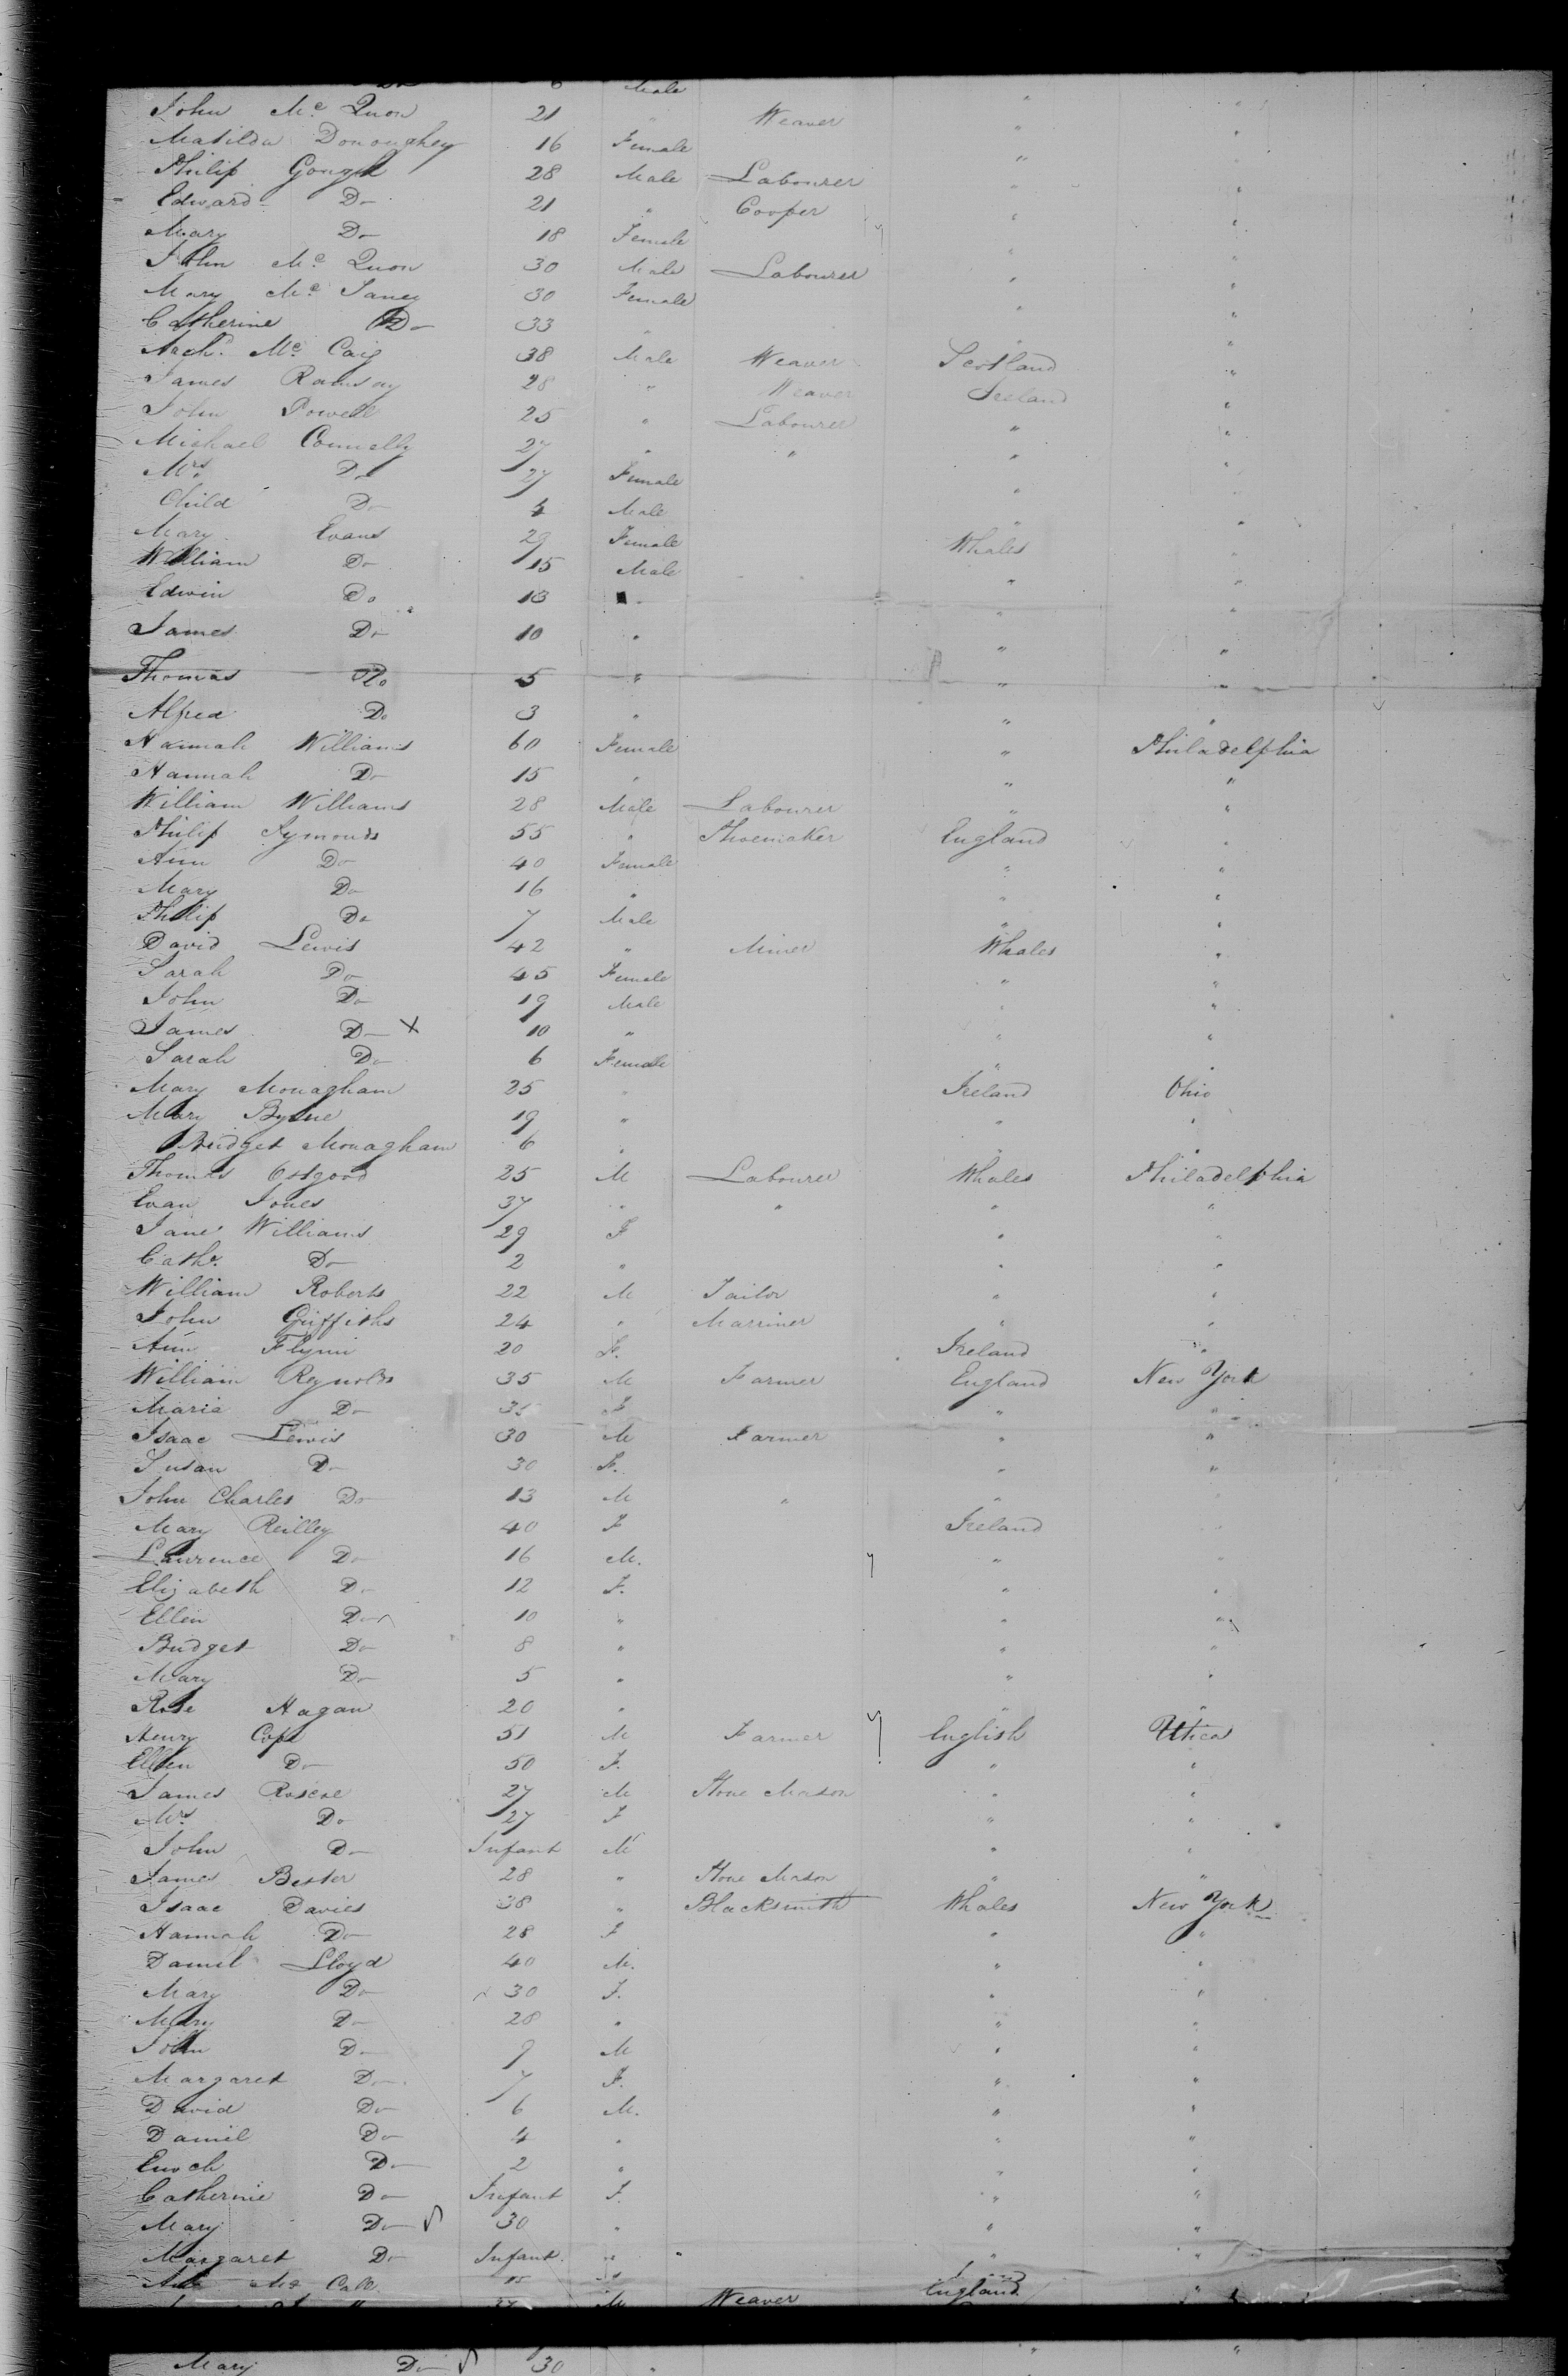 Do 6 Male
John Mc Quon 21 " Weaver " "
Matilda Donoughey 16 Female " "
Philip Gough 28 Male Labourer " "
Edward Do 21 " Cooper " "
Mary Do 18 Female " "
John Mc Quon 30 Male Labourer " "
Mary Mc Janey 30 Female " "
Catherine Do 33 " " "
Arch. Mc Caig 38 Male Weaver Scotland "
James Ramsay 28 " Weaver Ireland "
John Powell 25 " Labourer " "
Michael Connelly 27 " " " "
Mrs Do 27 Female " "
Child Do 4 Male " "
Mary Evans 29 Female Whales "
William Do 15 Male " "
Edwin Do 13 " " "
James Do 10 " " "
Thomas Do 5 " " "
Alfred Do 3 " " "
Hannah Williams 60 Female " Philadelphia
Hannah Do 15 " " "
William Williams 28 Male Labourer " "
Philip Symonds 55 " Shoemaker England "
Ann Do 40 Female " "
Mary Do 16 " " "
Philip Do 7 Male " "
David Lewis 42 " Miner Whales "
Sarah Do 45 Female " "
John Do 19 Male " "
James Do X 10 " " "
Sarah Do 6 Female " "
Mary Monagham 25 " Ireland Ohio
Mary Byrne 19 " " "
Bridget Monagham 6 " " "
Thomas Osgood 25 M Labourer Whales Philadelphia
Evan Jones 37 " " " "
Jane Williams 29 F " "
Cathe. Do 2 " " "
William Roberts 22 M Tailor " "
John Griffiths 24 " Marriner " "
Ann Flynn 20 F. Ireland "
William Reynolds 35 M Farmer England New York
Maria Do 35 F " "
Isaac Lewis 30 M Farmer " "
Susan Do 30 F. " "
John Charles Do 13 M " " "
Mary Reilley 40 F Ireland "
Lawrence Do 16 M. " "
Elizabeth Do 12 F. " "
Ellen Do 10 " " "
Bridget Do 8 " " "
Mary Do 5 " " "
Rose Hagan 20 " " "
Henry Cope 51 M Farmer English Utica
Ellen Do 50 F. " "
James Roscoe 27 M Stone Mason " "
Mrs Do 27 F " "
John Do Infant M " "
James Bester 28 " Stone Mason " "
Isaac Davies 38 " Blacksmith Whales New York
Hannah Do 28 F " "
Daniel Lloyd 40 M. " "
Mary Do 30 F. " "
Mary Do 28 " " "
John Do 9 M " "
Margaret Do 7 F. " "
David Do 6 M. " "
Daniel Do 4 " " "
Enoch Do 2 " " "
Catherine Do Infant F. " "
Mary Do 30 " " "
Margaret Do Infant " " "
Mc
M Weaver England "
Mary Do 30 " " "